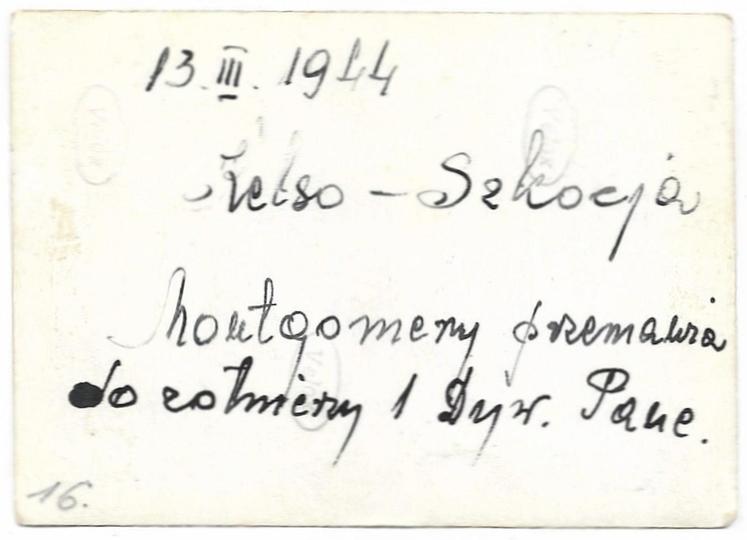 13.III.1944
Kelso - Szkocja
Montgomery przemawia
do żołnierzy 1 Dyw. Panc.
16.
Velox
Velox
Velox